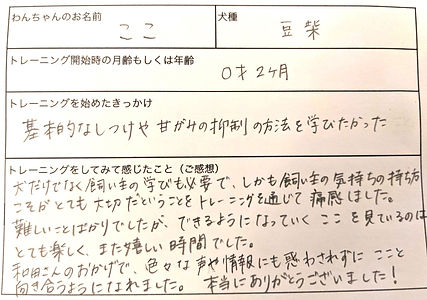 わんちゃんのお名前 ここ 犬種 豆柴
トレーニング開始時の月齢もしくは年齢
0才2ヶ月
トレーニングを始めたきっかけ
基本的なしつけや甘がみの抑制の方法を学びたかった
トレーニングをしてみて感じたこと(ご感想)
犬だけでなく飼い主の学びも必要で、しかも飼い主の気持ちの持ち方
こそがとても大切だということをトレーニングを通じて痛感しました。
難しいことばかりでしたが、できるようになっていくここを見ているのは
とても楽しく、また嬉しい時間でした。
和田さんのおかげで、色々な声や情報にも惑わされずにここと
向き合うようになれました。本当にありがとうございました!